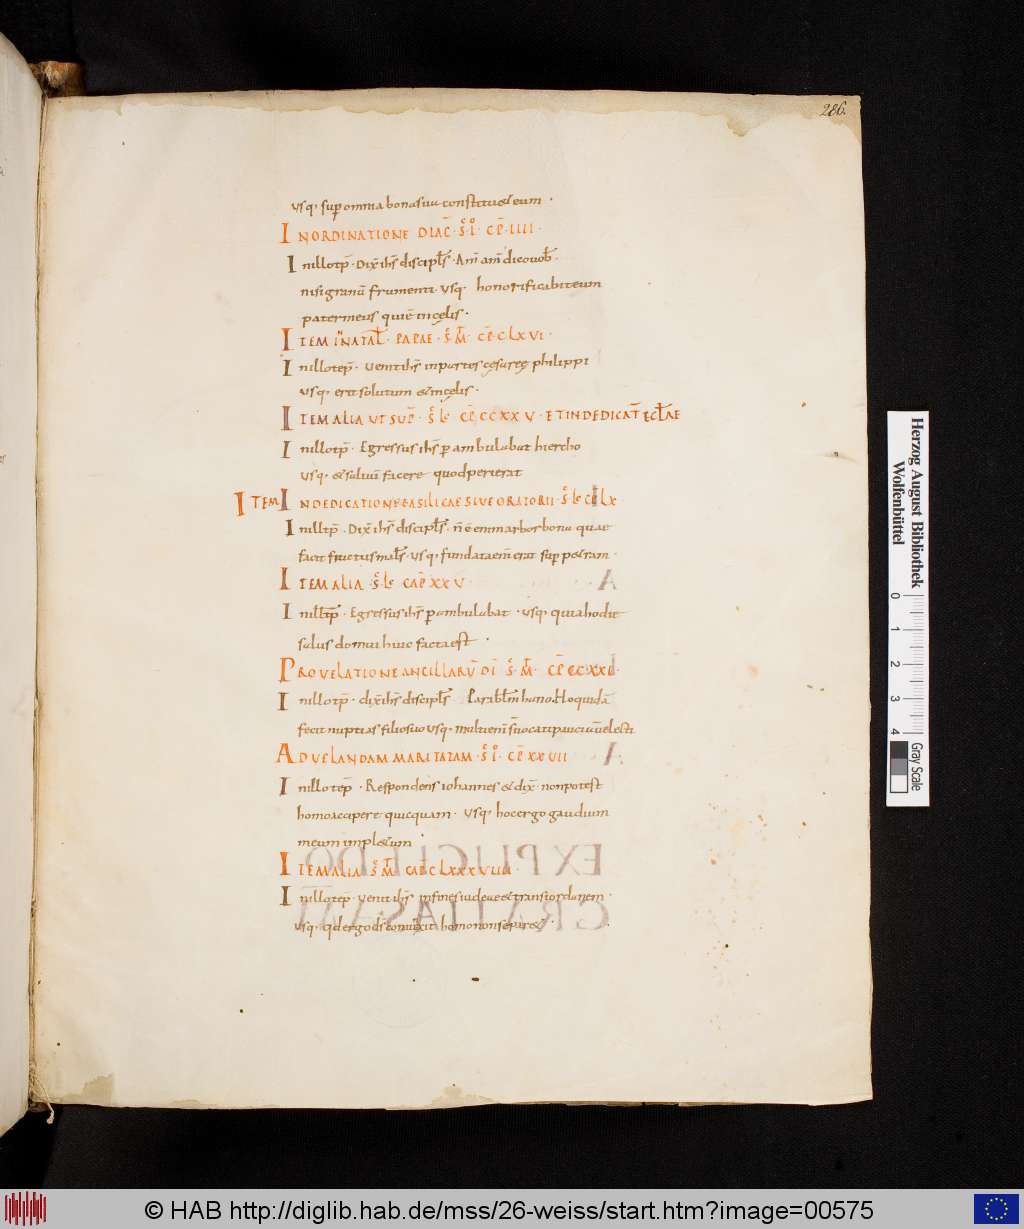 286.
usq· sup̄ omnia bona sua constituet eum ·
IN ORDINATIONE DIAC̄ · S̄ IŌ · CP̄ · IIII ·
In illo tp̄ · Dix̄ ih̄s discipl̄s · Am̄ am̄ dico vob̄ ·
nisi granū frumenti · usq · honorificabit eum
pater meus qui ē in cęlis ·
ITEM IN NATAL̄ · PAPAE · S̄ M̄ · CP̄ · CLXVI ·
In illo tep̄ · Venit ih̄s in partes cęsareę philippi
usq · erit solutum & in cęlis ·
ITEM ALIA UT SUP̄ · S̄ LC · CP̄ · CCXXV · ET IN DEDICAT̄ ECL̄AE
In illo tp̄ · Egressus ih̄s p̄ambulabat hiercho
usq · & saluū facere quod perierat
ITEM IN DEDICATIONE BASILICAE SIVE ORATORII · S̄ LC CP̄ LX
In ill tp̄ · Dix̄ ih̄s discipl̄s · n̄ ē enim arbor bona quae
facit fructus mal̄s · usq · fundata em̄ erat sup̄ petram ·
ITEM ALIA · S̄ LC CAP̄ XXV
In ill tp̄ · Egressus ih̄s p̄ambulabat · usq · quia hodie
salus domui huic facta est ·
PRO VELATIONE ANCILLARŪ DĪ S̄ M̄ · CP̄ CCXXI ·
In illo tp̄ · dix̄ ih̄s discipl̄s · Parabl̄m hanc · Homo quidā
fecit nuptias filio suo usq · multi enim s̄ vocati pauci ū electi
AD VELANDAM MARITATAM · S̄ IŌ · CP̄ XXVII
In illo tep̄ · Respondens iohannes & dix̄ · non potest
homo accipere quicquam · usq · hoc ergo gaudium
meum impletum
ITEM ALIA S̄ M̄ CAP̄ CLXXXVIIII ·
In illo tep̄ · Venit ih̄s in fines iudeae & trans iordanem ·
usq · qđ ergo d̄s coniunxit homo non separet ·
Herzog August Bibliothek
Wolfenbüttel
0 1 2 3 4
Gray Scale
© HAB http://diglib.hab.de/mss/26-weiss/start.htm?image=00575